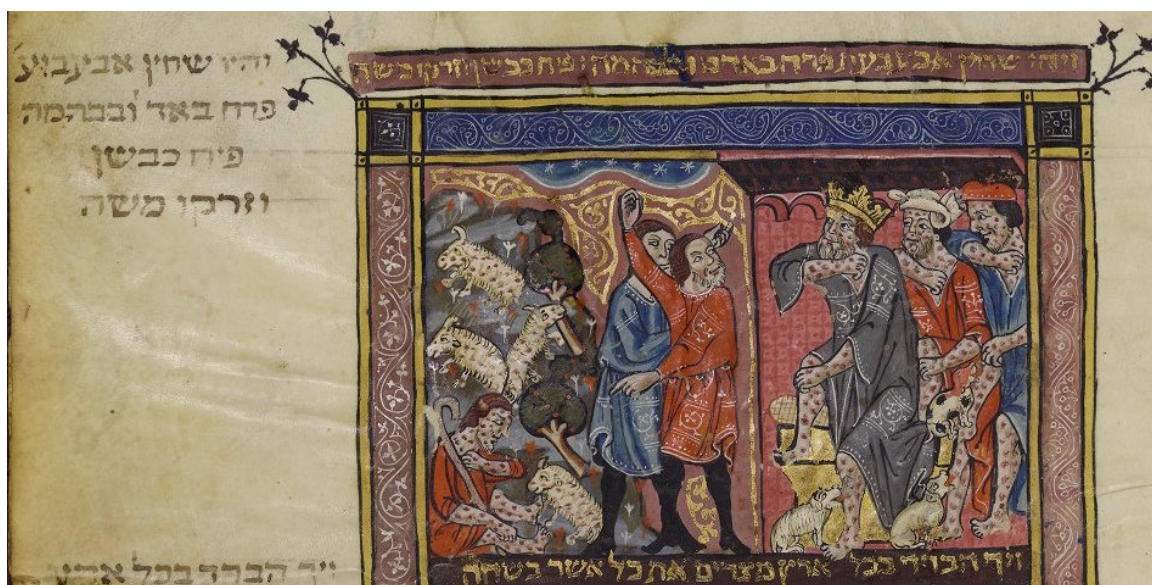 ויהי שחין אבעבעות פרח באדם ובבהמה: פיח כבשן וזרקו משה
יהיו שחין אבעבוע
פרח באד' ובבהמה
פיח כבשן
וזרקו משה
ויך הברד בכל ארץ מצרים את כל אשר בשדה
ויך הברד בכל ארץ